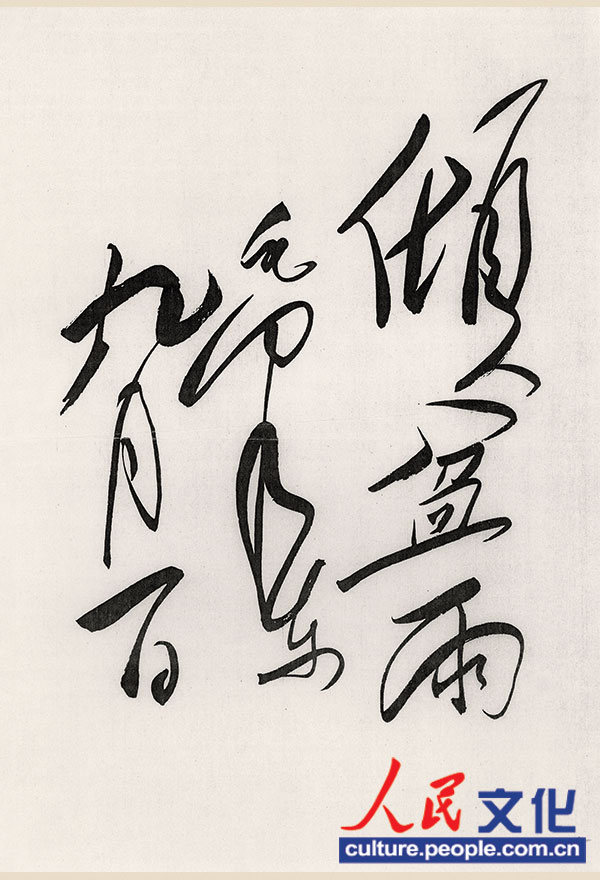 倾盆雨
毛泽东
九月一日
人民文化
culture.people.com.cn